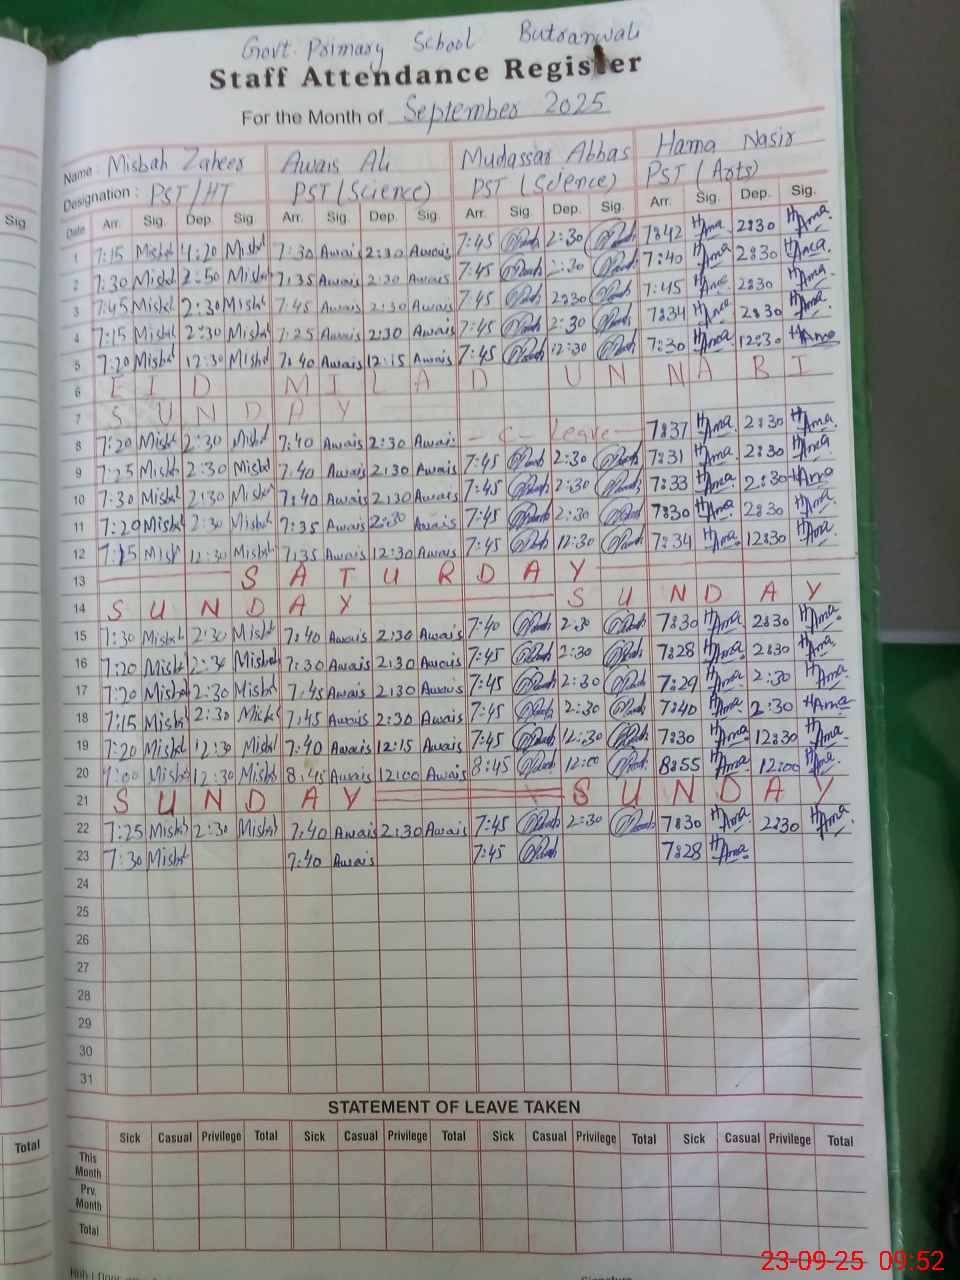 Govt. Primary School Butranwali
Staff Attendance Register
For the Month of September 2025
Name : Misbah Zaheer Awais Ali Mudassar Abbas Hama Nasir
Designation : PST/HT PST (Science) PST (Science) PST (Arts)
Sig
Date Arr. Sig. Dep. Sig. Arr. Sig. Dep. Sig. Arr. Sig. Dep. Sig. Arr. Sig. Dep. Sig.
1 7:15 Misbah Misbah 7:30 Awais 2:30 Awais 7:45 2:30 7:42 Hama 2:30 Hama
2 7:30 Misbah 2:50 Misbah 7:35 Awais 2:30 Awais 7:45 2:30 7:40 Hama 2:30 Hama
3 7:45 Misbah 2:30 Misbah 7:45 Awais 2:30 Awais 7:45 2:30 7:45 Hama 2:30 Hama
4 7:15 Misbah 2:30 Misbah 7:25 Awais 2:30 Awais 7:45 2:30 7:34 Hama 2:30 Hama
5 7:20 Misbah 12:30 Misbah 7:40 Awais 12:15 Awais 7:45 12:30 7:30 Hama 12:30 Hama
6 EID MILAD UN NABI
7 SUNDAY
8 7:20 Misbah 2:30 Misbah 7:40 Awais 2:30 Awais - C - Leave - 7:37 Hama 2:30 Hama
9 7:25 Misbah 2:30 Misbah 7:40 Awais 2:30 Awais 7:45 2:30 7:31 Hama 2:30 Hama
10 7:30 Misbah 2:30 Misbah 7:40 Awais 2:30 Awais 7:45 2:30 7:33 Hama 2:30 Hama
11 7:20 Misbah 2:30 Misbah 7:35 Awais 2:30 Awais 7:45 2:30 7:30 Hama 2:30 Hama
12 7:15 Misbah 12:30 Misbah 7:35 Awais 12:30 Awais 7:45 12:30 7:34 Hama 12:30 Hama
13 SATURDAY
14 SUNDAY SUNDAY
15 7:30 Misbah 2:30 Misbah 7:40 Awais 2:30 Awais 7:40 2:30 7:30 Hama 2:30 Hama
16 7:20 Misbah 2:30 Misbah 7:30 Awais 2:30 Awais 7:45 2:30 7:28 Hama 2:30 Hama
17 7:20 Misbah 2:30 Misbah 7:45 Awais 2:30 Awais 7:45 2:30 7:29 Hama 2:30 Hama
18 7:15 Misbah 2:30 Misbah 7:45 Awais 2:30 Awais 7:45 2:30 7:40 Hama 2:30 Hama
19 7:20 Misbah 12:30 Misbah 7:40 Awais 12:15 Awais 7:45 12:30 7:30 Hama 12:30 Hama
20 Misbah 12:30 Misbah 8:45 Awais 12:00 Awais 8:45 12:00 8:55 Hama 12:00 Hama
21 SUNDAY SUNDAY
22 7:25 Misbah 2:30 Misbah 7:40 Awais 2:30 Awais 7:45 2:30 7:30 Hama 2:30 Hama
23 7:30 Misbah 7:40 Awais 7:45 7:28 Hama
24
25
26
27
28
29
30
31
STATEMENT OF LEAVE TAKEN
Total Sick Casual Privilege Total Sick Casual Privilege Total Sick Casual Privilege Total Sick Casual Privilege Total
This Month
Prv. Month
Total
23-09-25 09:52